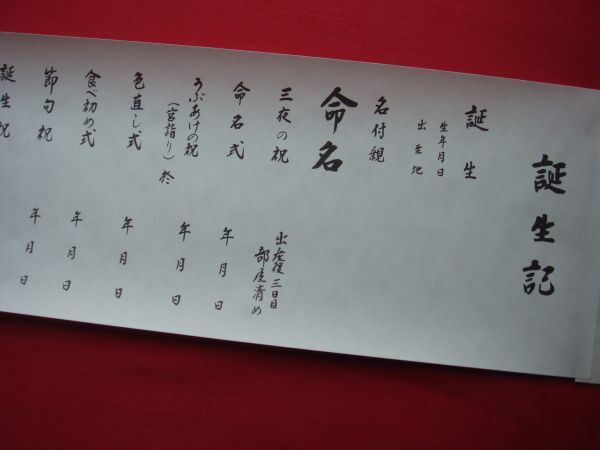 誕生記
誕生
生年月日
出生地
名付親
命名
三夜の祝
出産後三日目
部屋清め
命名式
年月日
うぶあけの祝
(宮詣り)
年月日
色直し式
年月日
食べ初め式
年月日
節句祝
年月日
誕生祝